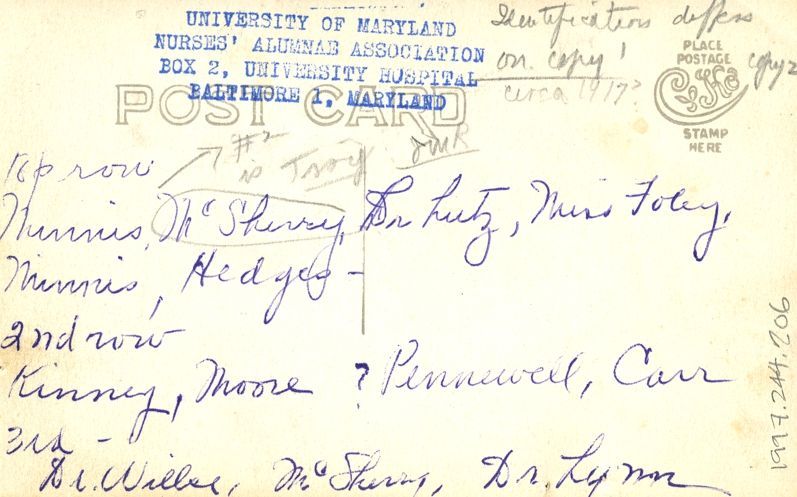 UNIVERSITY OF MARYLAND
NURSES' ALUMNAE ASSOCIATION
BOX 2, UNIVERSITY HOSPITAL
BALTIMORE 1, MARYLAND
Identification differs
on copy 1
copy 2
circa 1917?
POST CARD
PLACE
POSTAGE
STAMP
HERE
#2
is Troy
Top row
Minnis, McSherry, Dr Lutz, Miss Foley,
Minnis, Hedges -
2nd row
Kinney, Moore ? Pennewell, Carr
3rd -
Dr. Willse, McSherry, Dr. Lynn
1997.244.206